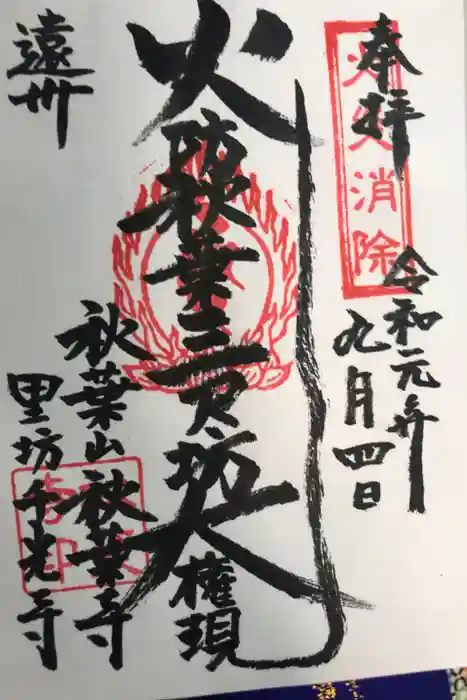 奉拝
消除
令和元年
九月四日
火防秋葉三尺坊大権現
遠州
秋葉山秋葉寺
里坊千光寺